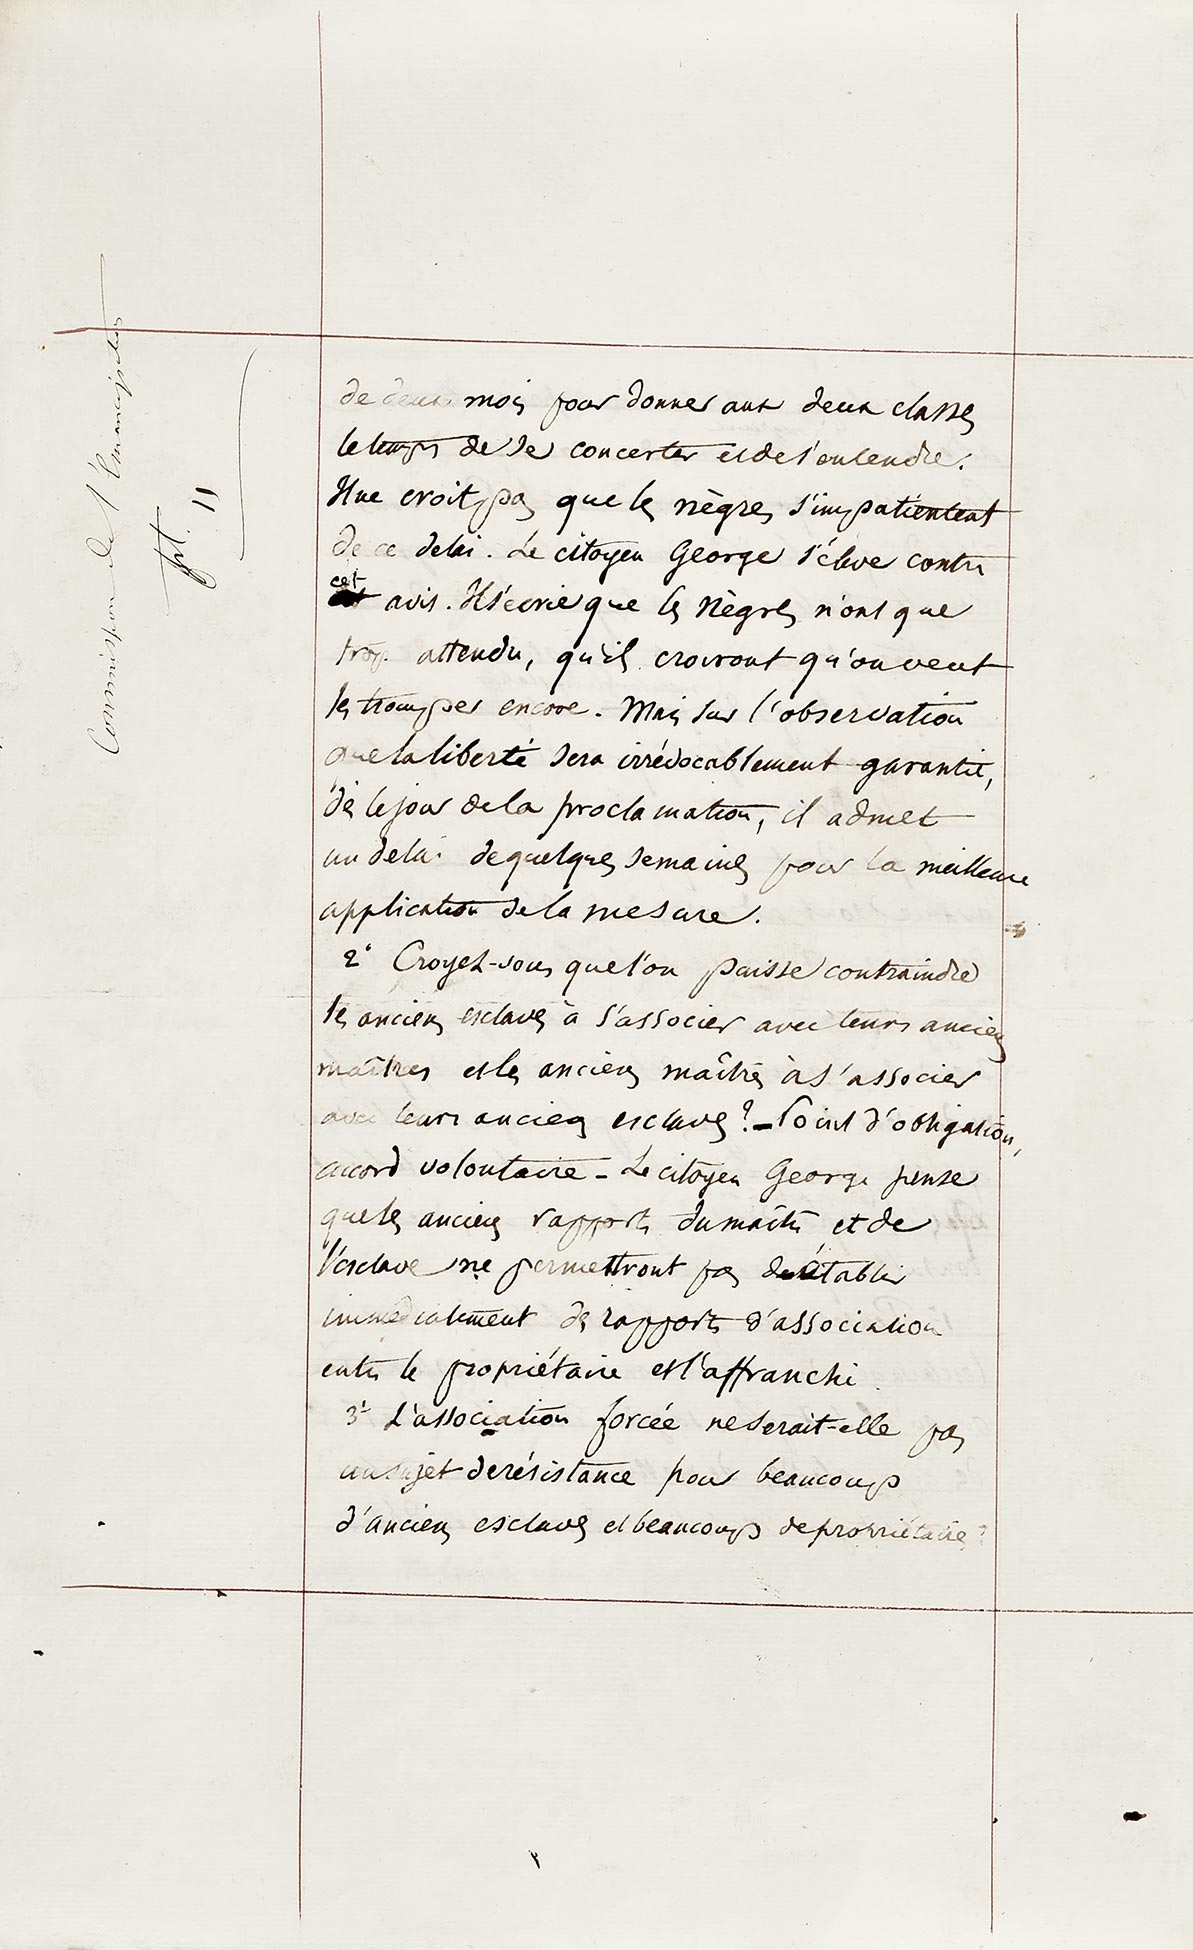 Commission de l'Émancipation
fol. 11
de deux mois pour donner aux deux classes
le temps de se concerter et de s'entendre.
Il ne croit pas que les nègres s'impatientent
de ce délai. Le citoyen George s'élève contre
cet avis. Il s'écrie que les Nègres n'ont que
trop attendu, qu'ils croiront qu'on veut
les tromper encore. Mais sur l'observation
que la liberté sera irrévocablement garantie,
dès le jour de la proclamation, il admet
un délai de quelques semaines pour la meilleure
application de la mesure.
2° Croyez-vous que l'on puisse contraindre
les anciens esclaves à s'associer avec leurs anciens
maîtres et les anciens maîtres à s'associer
avec leurs anciens esclaves? - Point d'obligation,
accord volontaire - Le citoyen George pense
que les anciens rapports du maître et de
l'esclave ne permettront pas d'établir
immédiatement des rapports d'association
entre le propriétaire et l'affranchi.
3° L'association forcée ne serait-elle pas
un sujet de résistance pour beaucoup
d'anciens esclaves et beaucoup de propriétaires?